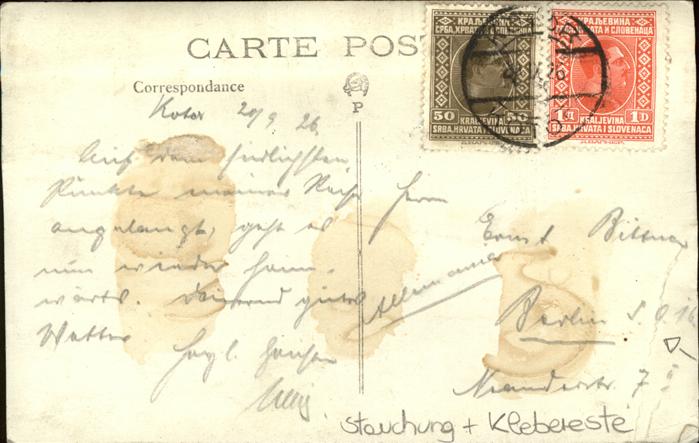 CARTE POST
КРАЉЕВИНА
СРБА, ХРВАТА И СЛОВЕНАЦА
50 50
KRALJEVINA
SRBA, HRVATA I SLOVENACA
КРАЉЕВИНА
СРБА, ХРВАТА И СЛОВЕНАЦА
1Д 1D
KRALJEVINA
SRBA, HRVATA I SLOVENACA
Correspondance
P
Kotor 20/9 26.
Auf dem südlichsten
Punkte meiner Reise
angelangt, geht es
nun wieder heim-
wärts. Dauernd gutes
Wetter
Herzl.
Herrn
Ernst Bittner
Alemannia
Berlin S.O. 16
Neanderstr. 7
Stauchung + Klebereste